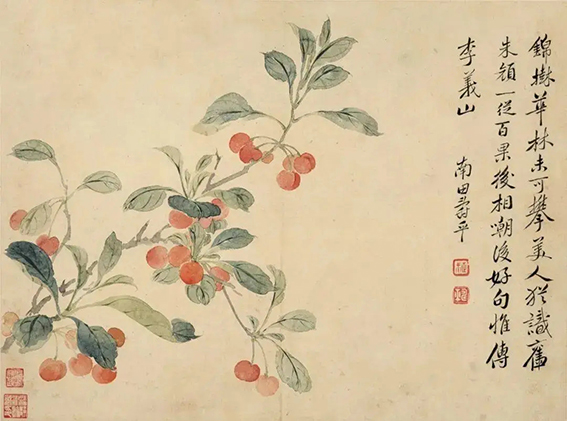 錦樹華林未可攀美人猶識舊
朱顏一從百果後相嘲後好句惟傳
李義山
南田壽平